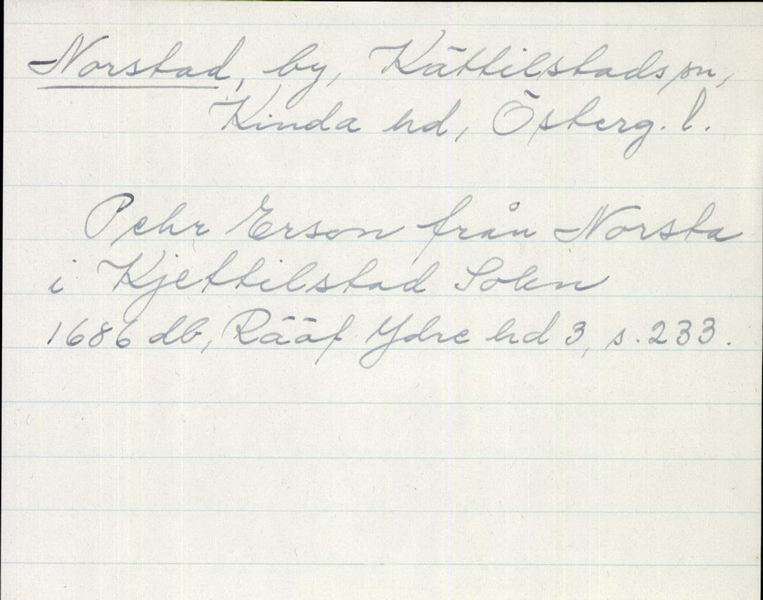 Norstad, by, Kättilstads sn,
Kinda hd, Österg. l.
Pehr Erson från Norsta
i Kjettilstad Sokn
1686 db, Rääf Ydre hd 3, s. 233.